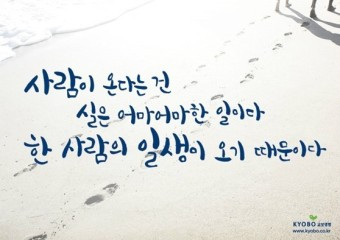 사람이 온다는 건
실은 어마어마한 일이다
한 사람의 일생이 오기 때문이다
KYOBO 교보생명
www.kyobo.co.kr